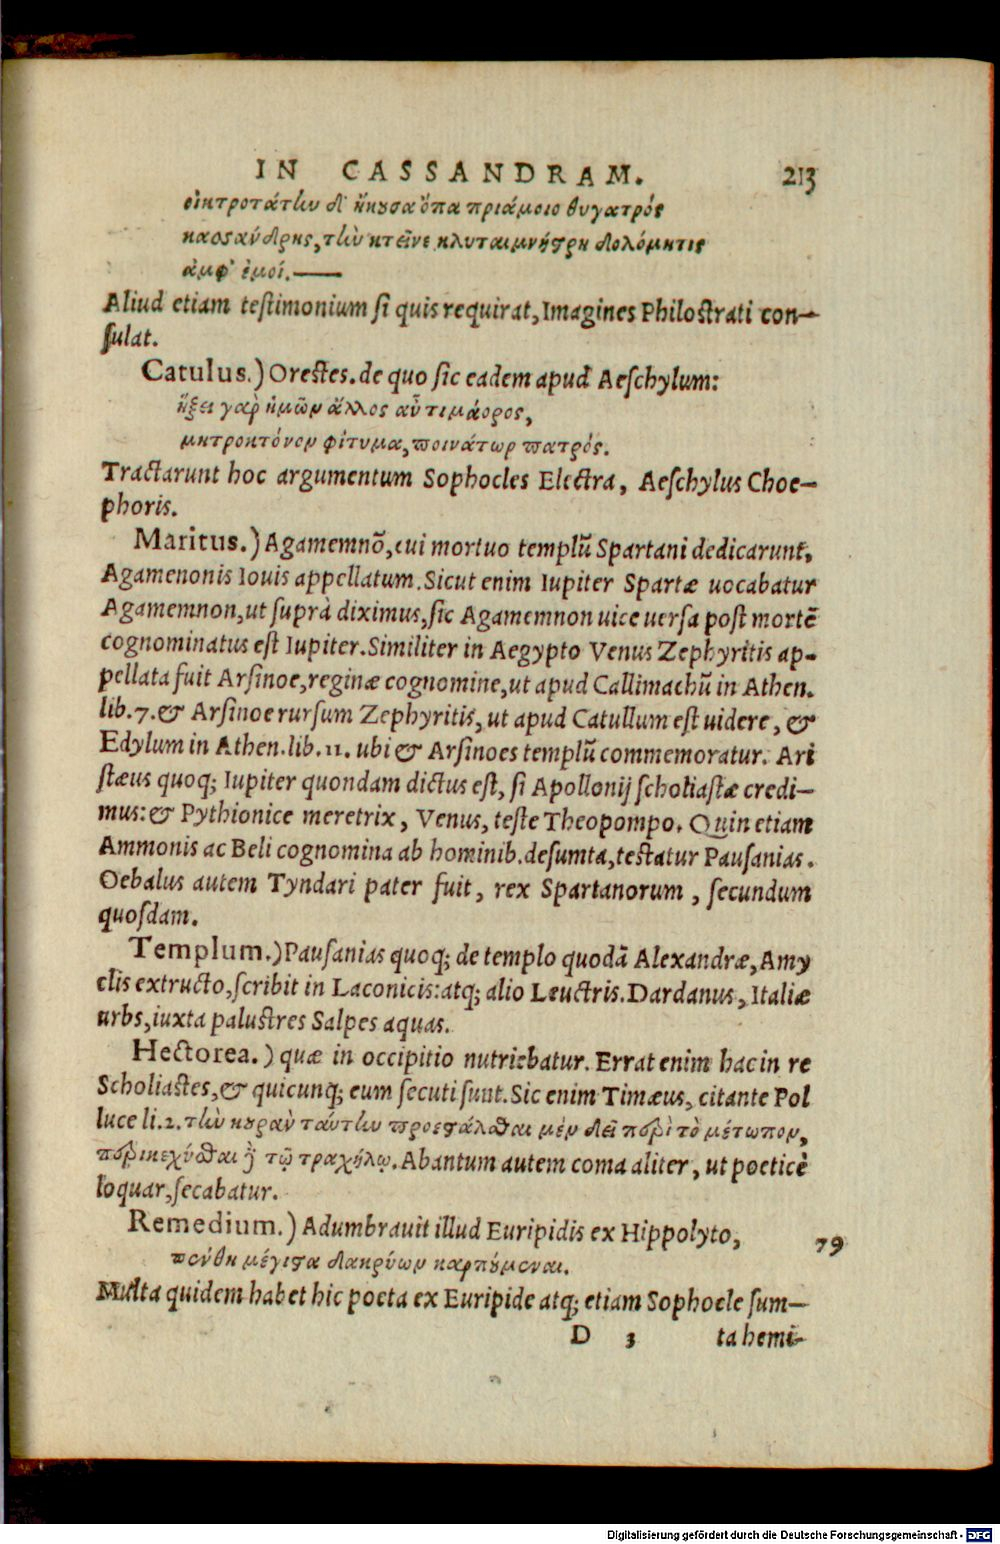 IN CASSANDRAM. 213
οἰκτροτάτην δ' ἤκουσα ὄπα πριάμοιο θυγατρός
κασσάνδρης, τὴν κτεῖνε κλυταιμνήστρη δολόμητις
ἀμφ' ἐμοί.——
Aliud etiam teſtimonium ſi quis requirat, Imagines Philoſtrati con-
ſulat.
Catulus.) Oreſtes. de quo ſic eadem apud Aeſchylum:
ἥξει γὰρ ἡμῶν ἄλλος αὖ τιμάορος,
μητροκτόνον φίτυμα, ποινάτωρ πατρός.
Tractarunt hoc argumentum Sophocles Electra, Aeſchylus Choe-
phoris.
Maritus.) Agamemnō, cui mortuo templū Spartani dedicarunt,
Agamenonis Iouis appellatum. Sicut enim Iupiter Spartæ uocabatur
Agamemnon, ut ſuprà diximus, ſic Agamemnon uice uerſa poſt mortē
cognominatus eſt Iupiter. Similiter in Aegypto Venus Zephyritis ap-
pellata fuit Arſinoe, reginæ cognomine, ut apud Callimachū in Athen.
lib. 7. & Arſinoe rurſum Zephyritis, ut apud Catullum eſt uidere, &
Edylum in Athen. lib. 11. ubi & Arſinoes templū commemoratur. Ari
ſtæus quoq; Iupiter quondam dictus eſt, ſi Apollonij ſcholiaſtæ credi-
mus: & Pythionice meretrix, Venus, teſte Theopompo. Quin etiam
Ammonis ac Beli cognomina ab hominib. deſumta, teſtatur Pauſanias.
Oebalus autem Tyndari pater fuit, rex Spartanorum, ſecundum
quoſdam.
Templum.) Pauſanias quoq; de templo quodā Alexandræ, Amy
clis extructo, ſcribit in Laconicis: atq; alio Leuctris. Dardanus, Italiæ
urbs, iuxta paluſtres Salpes aquas.
Hectorea.) quæ in occipitio nutriebatur. Errat enim hac in re
Scholiaſtes, & quicunq; eum ſecuti ſunt. Sic enim Timæus, citante Pol
luce li. 2. τὴν κουρὰν ταύτην προεστάλθαι μὲν δεῖ περὶ τὸ μέτωπον,
περικεχύσθαι δὲ τῷ τραχήλῳ. Abantum autem coma aliter, ut poeticè
loquar, ſecabatur.
Remedium.) Adumbrauit illud Euripidis ex Hippolyto, 79
πένθη μέγιστα δακρύων καρπούμεναι.
Multa quidem habet hic poeta ex Euripide atq; etiam Sophocle ſum-
D 3 ta hemi-
Digitalisierung gefördert durch die Deutsche Forschungsgemeinschaft - DFG